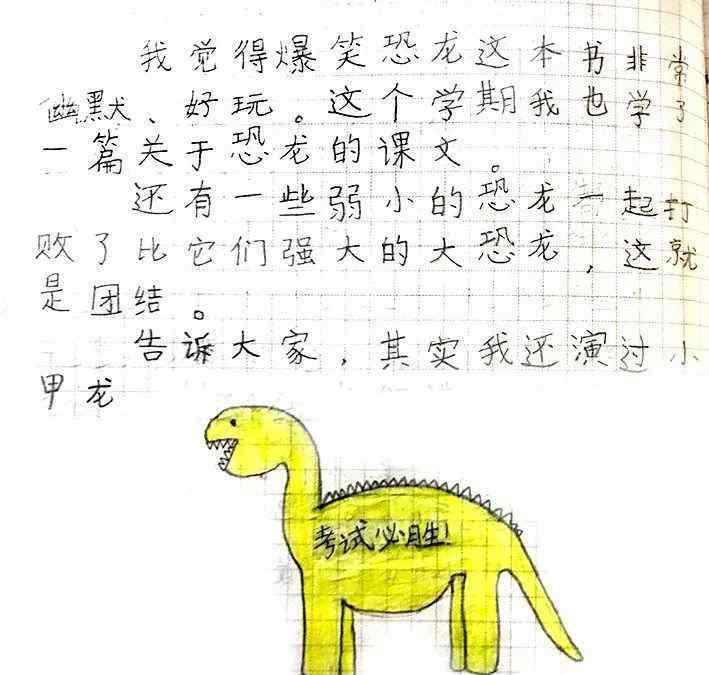 我觉得爆笑恐龙这本书非常
幽默、好玩。这个学期我也学了
一篇关于恐龙的课文。
还有一些弱小的恐龙一起打
败了比它们强大的大恐龙，这就
是团结。
告诉大家，其实我还演过小
甲龙
考试必胜！